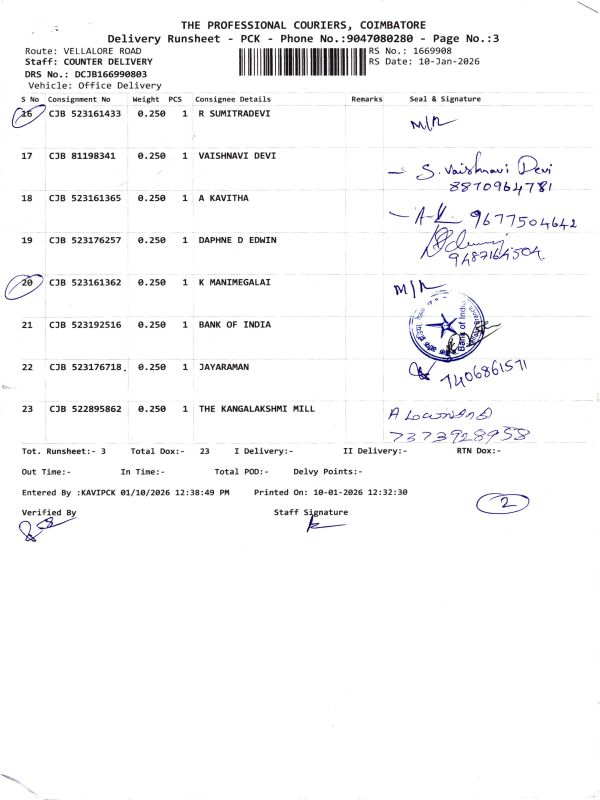 THE PROFESSIONAL COURIERS, COIMBATORE
Delivery Runsheet - PCK - Phone No.:9047080280 - Page No.:3
Route: VELLALORE ROAD RS No.: 1669908
Staff: COUNTER DELIVERY RS Date: 10-Jan-2026
DRS No.: DCJB166990803
Vehicle: Office Delivery
S No Consignment No Weight PCS Consignee Details Remarks Seal & Signature
16 CJB 523161433 0.250 1 R SUMITRADEVI M/R
17 CJB 81198341 0.250 1 VAISHNAVI DEVI S. Vaishnavi Devi
8870964781
18 CJB 523161365 0.250 1 A KAVITHA 9677504642
19 CJB 523176257 0.250 1 DAPHNE D EDWIN
9487164504
20 CJB 523161362 0.250 1 K MANIMEGALAI M/R
21 CJB 523192516 0.250 1 BANK OF INDIA Bank of India
22 CJB 523176718. 0.250 1 JAYARAMAN 7406861571
23 CJB 522895862 0.250 1 THE KANGALAKSHMI MILL
7373928958
Tot. Runsheet:- 3 Total Dox:- 23 I Delivery:- II Delivery:- RTN Dox:-
Out Time:- In Time:- Total POD:- Delvy Points:-
Entered By :KAVIPCK 01/10/2026 12:38:49 PM Printed On: 10-01-2026 12:32:30
2
Verified By Staff Signature